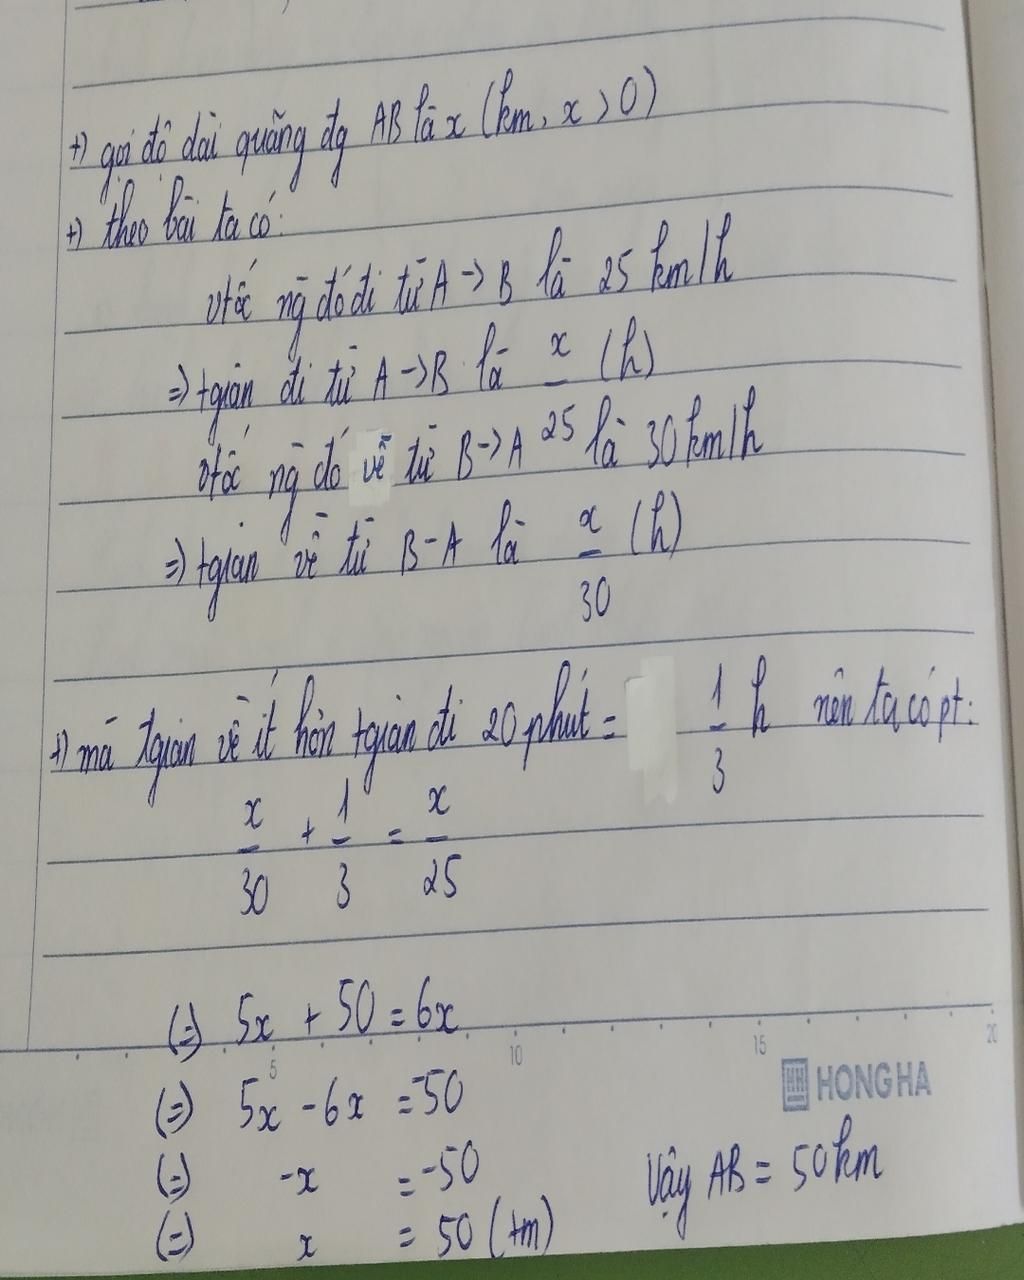 +) gọi độ dài quãng đg AB là x (km, x > 0)
+) theo bài ta có:
vtốc ng đó đi từ A -> B là 25 km/h
=> tgian đi từ A -> B là x/25 (h)
vtốc ng đó về từ B -> A là 30 km/h
=> tgian về từ B - A là x/30 (h)
+) mà tgian về ít hơn tgian đi 20 phút = 1/3 h nên ta có pt:
x/30 + 1/3 = x/25
(=) 5x + 50 = 6x
5 10 15 20
HONG HA
(=) 5x - 6x = -50
(=) -x = -50
(=) x = 50 (tm)
Vậy AB = 50 km